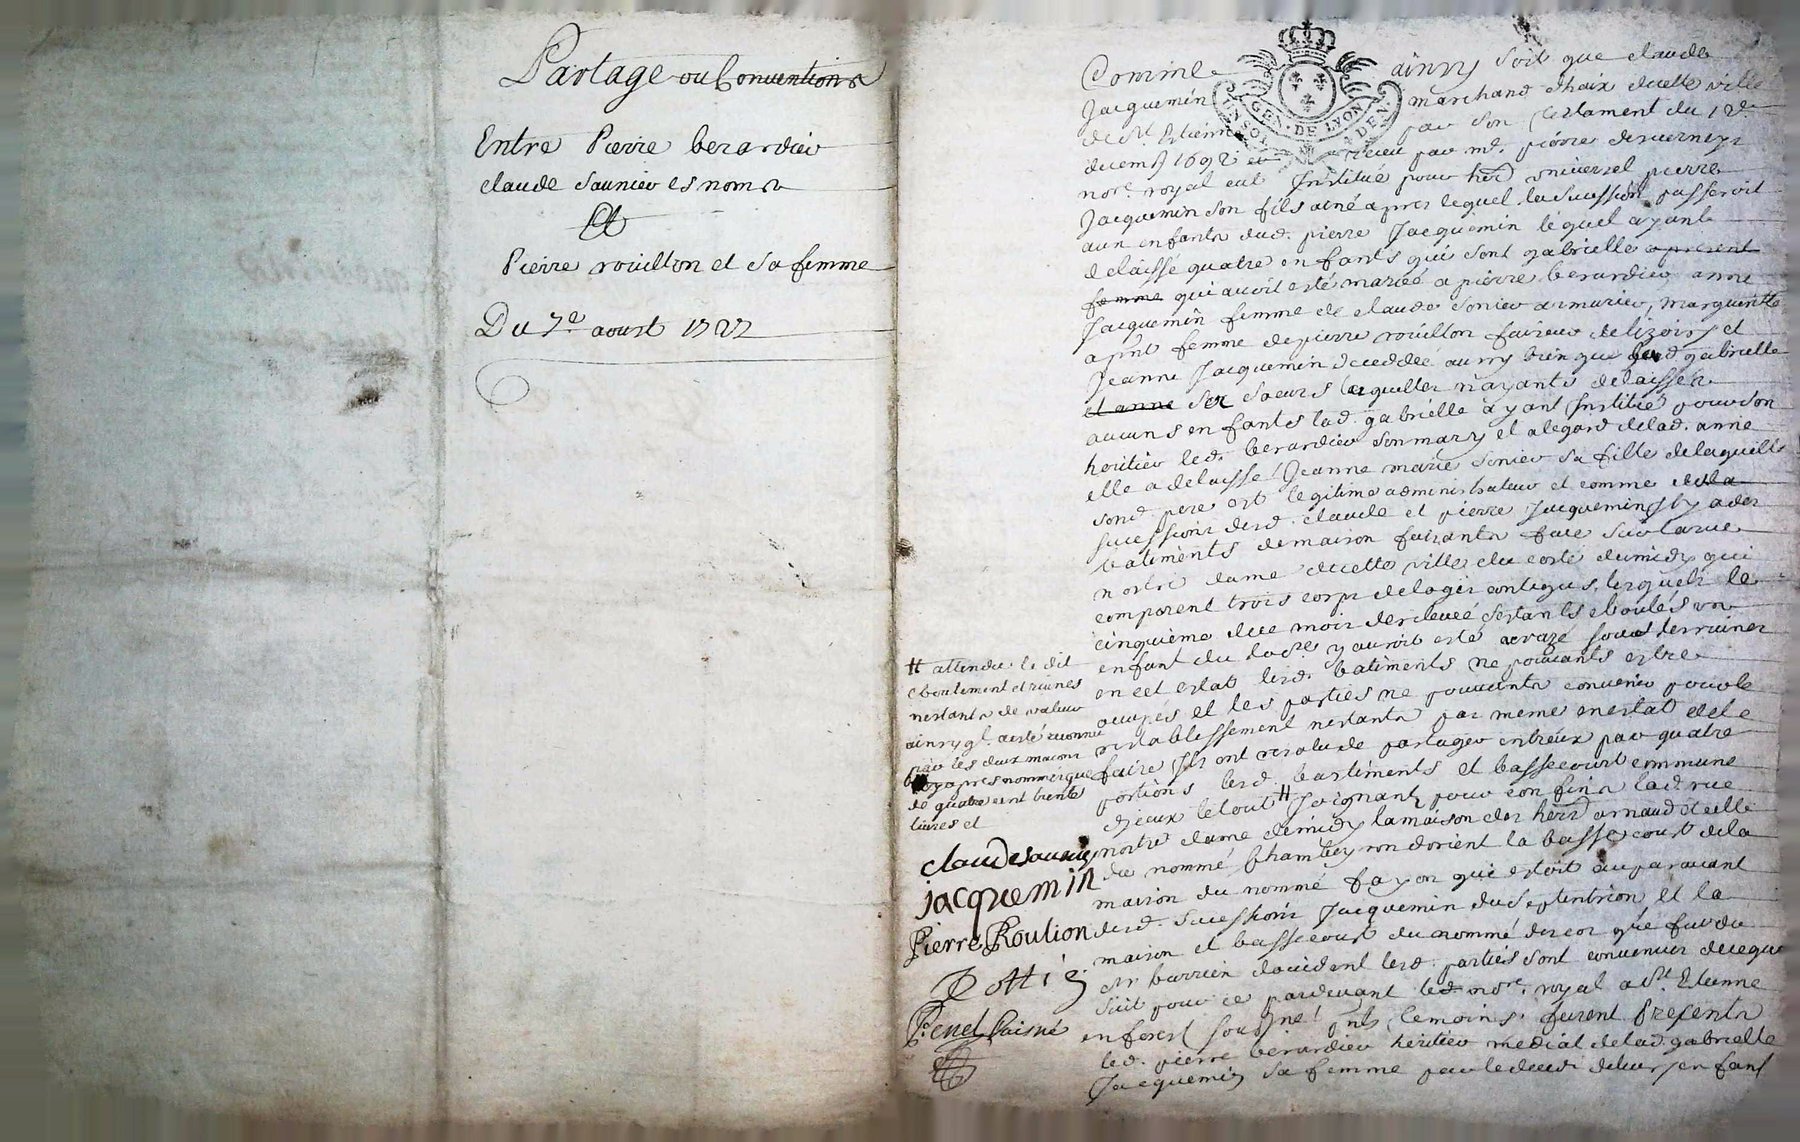 Partage ou Conventions
Entre Pierre berardier
claude saunier es noms
Et
Pierre rouillon et sa femme
Du 7e aoust 1727
GEN. DE LYON
Comme ainsy soit que claude
Jacquemin marchand chaix de cette ville
de St. Estienne par son testament du 12e
decemb 1692 receu par me. pierre desverneys
nore. royal eut Institué pour herd universel pierre
Jacquemin son fils ainé apres lequel la sucession passeroit
aux enfants dud. pierre Jacquemin lequel ayant
delaissé quatre enfants qui sont gabrielle apresent
femme qui avoit esté mariée a pierre berardier anne
Jacquemin femme de claude sonier armurier, margueritte
apnt femme de pierre rouillon faiseur de lizoirs et
Jeanne Jacquemin deceddée aussy bien que lad gabrielle
et anne ses soeurs lesquelles n'ayants delaissés
aucuns enfants lad. gabrielle ayant Institué pour son
heritier led. berardier son mary et alegard de lad. anne
elle a delaissé Jeanne marie sonier sa fille de laquelle
sond. pere est legitime administrateur et comme de la
sucession desd. claude et pierre Jacquemin il y a des
batiments de maison faisants face sur la rue
nostre dame de cette ville du costé de midy qui
composent trois corps de logis contigus, lesquels le
cinquieme du mois dernier s'estants eboulés un
enfant du y auroit esté ecrazé sous les ruines
en cet estat lesd. batiments ne pouvants estre
ocupés et les parties ne pouvants convenir pour le
restablissement n'estants pas meme en estat de le
faire Ils ont resolu de partager entreux par quatre
portions lesd. bastiments et bassecourt commune
dyceux le tout # Joignant pour confins lad. rue
nostre dame de midy la maison des herd arnaud et celle
du nommé Chambeyron d'orient la basse court de la
maison du nommé fayon qui estoit auparavant
desd. sucessions Jacquemin du septentrion et la
maison et bassecourt du nommé descos que fut du
sr burrien d'occident lesd. parties sont convenues de ce que
suit pour ce pardevant led nore. royal a St. Etienne
en forest soussigné pnts temoins furent Presents
led. pierre berardier heritier mediat de lad. gabrielle
Jacquemin sa femme par le deceds de leurs enfant
# attendu le dit
eboulement et ruines
nestants de valeur
ainsy ql. a esté reconnu
par les deux macons
cy apres nommés que
de quatre cent trente
livres et
claude saunier
jacquemin
Pierre Roulion
Penel Laisné